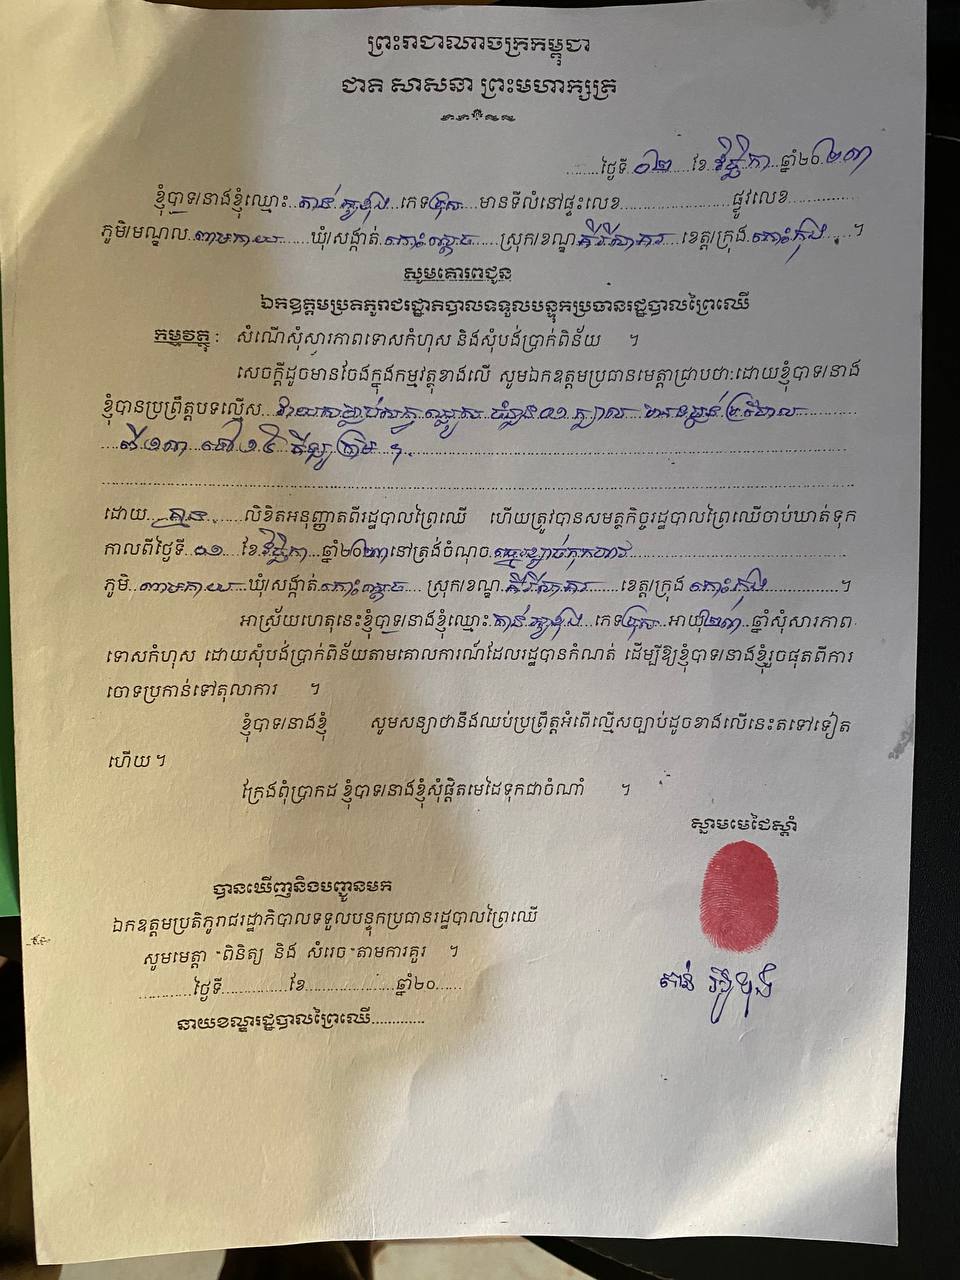 ព្រះរាជាណាចក្រកម្ពុជា
ជាតិ សាសនា ព្រះមហាក្សត្រ
........ថ្ងៃទី..០២.....ខែ.វិច្ឆិកា..ឆ្នាំ២០.២៣
ខ្ញុំបាទ/នាងខ្ញុំឈ្មោះ..តាន់..ភេទ.ប្រុស..មានទីលំនៅផ្ទះលេខ............................ផ្លូវលេខ...............
ភូមិ/មណ្ឌល..ពាមកាយ.......ឃុំ/សង្កាត់..កោះស្ដេច......ស្រុក/ខណ្ឌ.គីរីសាគរ...ខេត្ត/ក្រុង.កោះកុង.....។
សូមគោរពជូន
ឯកឧត្តមប្រតិភូរាជរដ្ឋាភិបាលទទួលបន្ទុកប្រធានរដ្ឋបាលព្រៃឈើ
កម្មវត្ថុ : សំណើសុំសារភាពទោសកំហុស និងសុំបង់ប្រាក់ពិន័យ ។
សេចក្ដីដូចមានចែងក្នុងកម្មវត្ថុខាងលើ សូមឯកឧត្តមប្រធានមេត្តាជ្រាបថា:ដោយខ្ញុំបាទ/នាង
ខ្ញុំបានប្រព្រឹត្តបទល្មើស..សត្វ..ចំនួន ០១ ក្បាល..មានទម្ងន់ប្រហែល..........
...ពី ១៣ ទៅ ១៥ គីឡូក្រាម ។..
ដោយ....គ្មាន........លិខិតអនុញ្ញាតពីរដ្ឋបាលព្រៃឈើ ហើយត្រូវបានសមត្ថកិច្ចរដ្ឋបាលព្រៃឈើចាប់ឃាត់ទុក
កាលពីថ្ងៃទី..០១...ខែ.វិច្ឆិកា...ឆ្នាំ២០២៣នៅត្រង់ចំណុច..
ភូមិ..ពាមកាយ...ឃុំ/សង្កាត់.កោះស្ដេច...ស្រុក/ខណ្ឌ.គីរីសាគរ.......ខេត្ត/ក្រុង កោះកុង..............។
អាស្រ័យហេតុនេះខ្ញុំបាទ/នាងខ្ញុំឈ្មោះ.តាន់..ភេទប្រុស..អាយុ២៣..ឆ្នាំសុំសារភាព
ទោសកំហុស ដោយសុំបង់ប្រាក់ពិន័យតាមគោលការណ៍ដែលរដ្ឋបានកំណត់ ដើម្បីឱ្យខ្ញុំបាទ/នាងខ្ញុំរួចផុតពីការ
ចោទប្រកាន់ទៅតុលាការ ។
ខ្ញុំបាទ/នាងខ្ញុំ សូមសន្យាថានឹងឈប់ប្រព្រឹត្តអំពើល្មើសច្បាប់ដូចខាងលើនេះតទៅទៀត
ហើយ ។
ក្រែងពុំប្រាកដ ខ្ញុំបាទ/នាងខ្ញុំសុំផ្ដិតមេដៃទុកជាចំណាំ ។
ស្នាមមេដៃស្ដាំ
បានឃើញនិងបញ្ជូនមក
ឯកឧត្តមប្រតិភូរាជរដ្ឋាភិបាលទទួលបន្ទុកប្រធានរដ្ឋបាលព្រៃឈើ
សូមមេត្តា "ពិនិត្យ និង សំរេច"តាមការគួរ ។
............ថ្ងៃទី...............ខែ....................ឆ្នាំ២០......
នាយខណ្ឌរដ្ឋបាលព្រៃឈើ............
តាន់